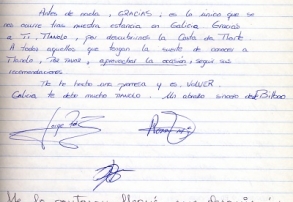 Antes de nada, GRACIAS; es lo único que se
nos ocurre tras nuestra estancia en Galicia. Gracias
a Ti, MANOLO, por descubrirnos la Costa da Morte
A todos aquellos que tengan la suerte de conocer a
Manolo, POR FAVOR, aprovechar la ocasión, seguir sus
recomendaciones.
Yo te hecho una promesa y es VOLVER.
Galicia te debe mucho MANOLO. Un abrazo sincero desde Bilbao
Jorge